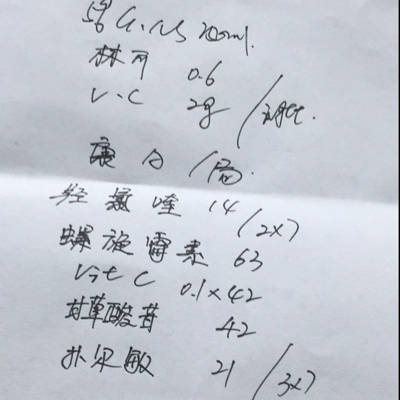 G.N.S 200ml.
林可 0.6
V.C 2g /
康 /
羟氯喹 14 (2×7
螺旋霉素 63
Vit C 0.1×42
甘草酸苷 42
扑尔敏 21 (3×7